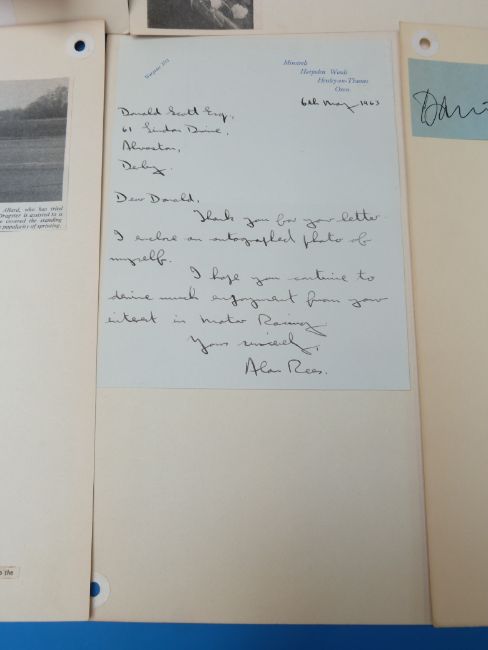 Wargrave 373
Minarets
Harpsden Woods
Henley-on-Thames
Oxon.
6th May 1963
Donald Scott Esq.,
61 Linden Drive,
Alvaston,
Derby.
Dear Donald,
Thank you for your letter
I enclose an autographed photo of
myself.
I hope you continue to
derive much enjoyment from your
interest in Motor Racing
Yours sincerely,
Alan Rees.
Allard, who has tried
Dragster is assisted to is
covered the standing
popularity of sprinting.
the